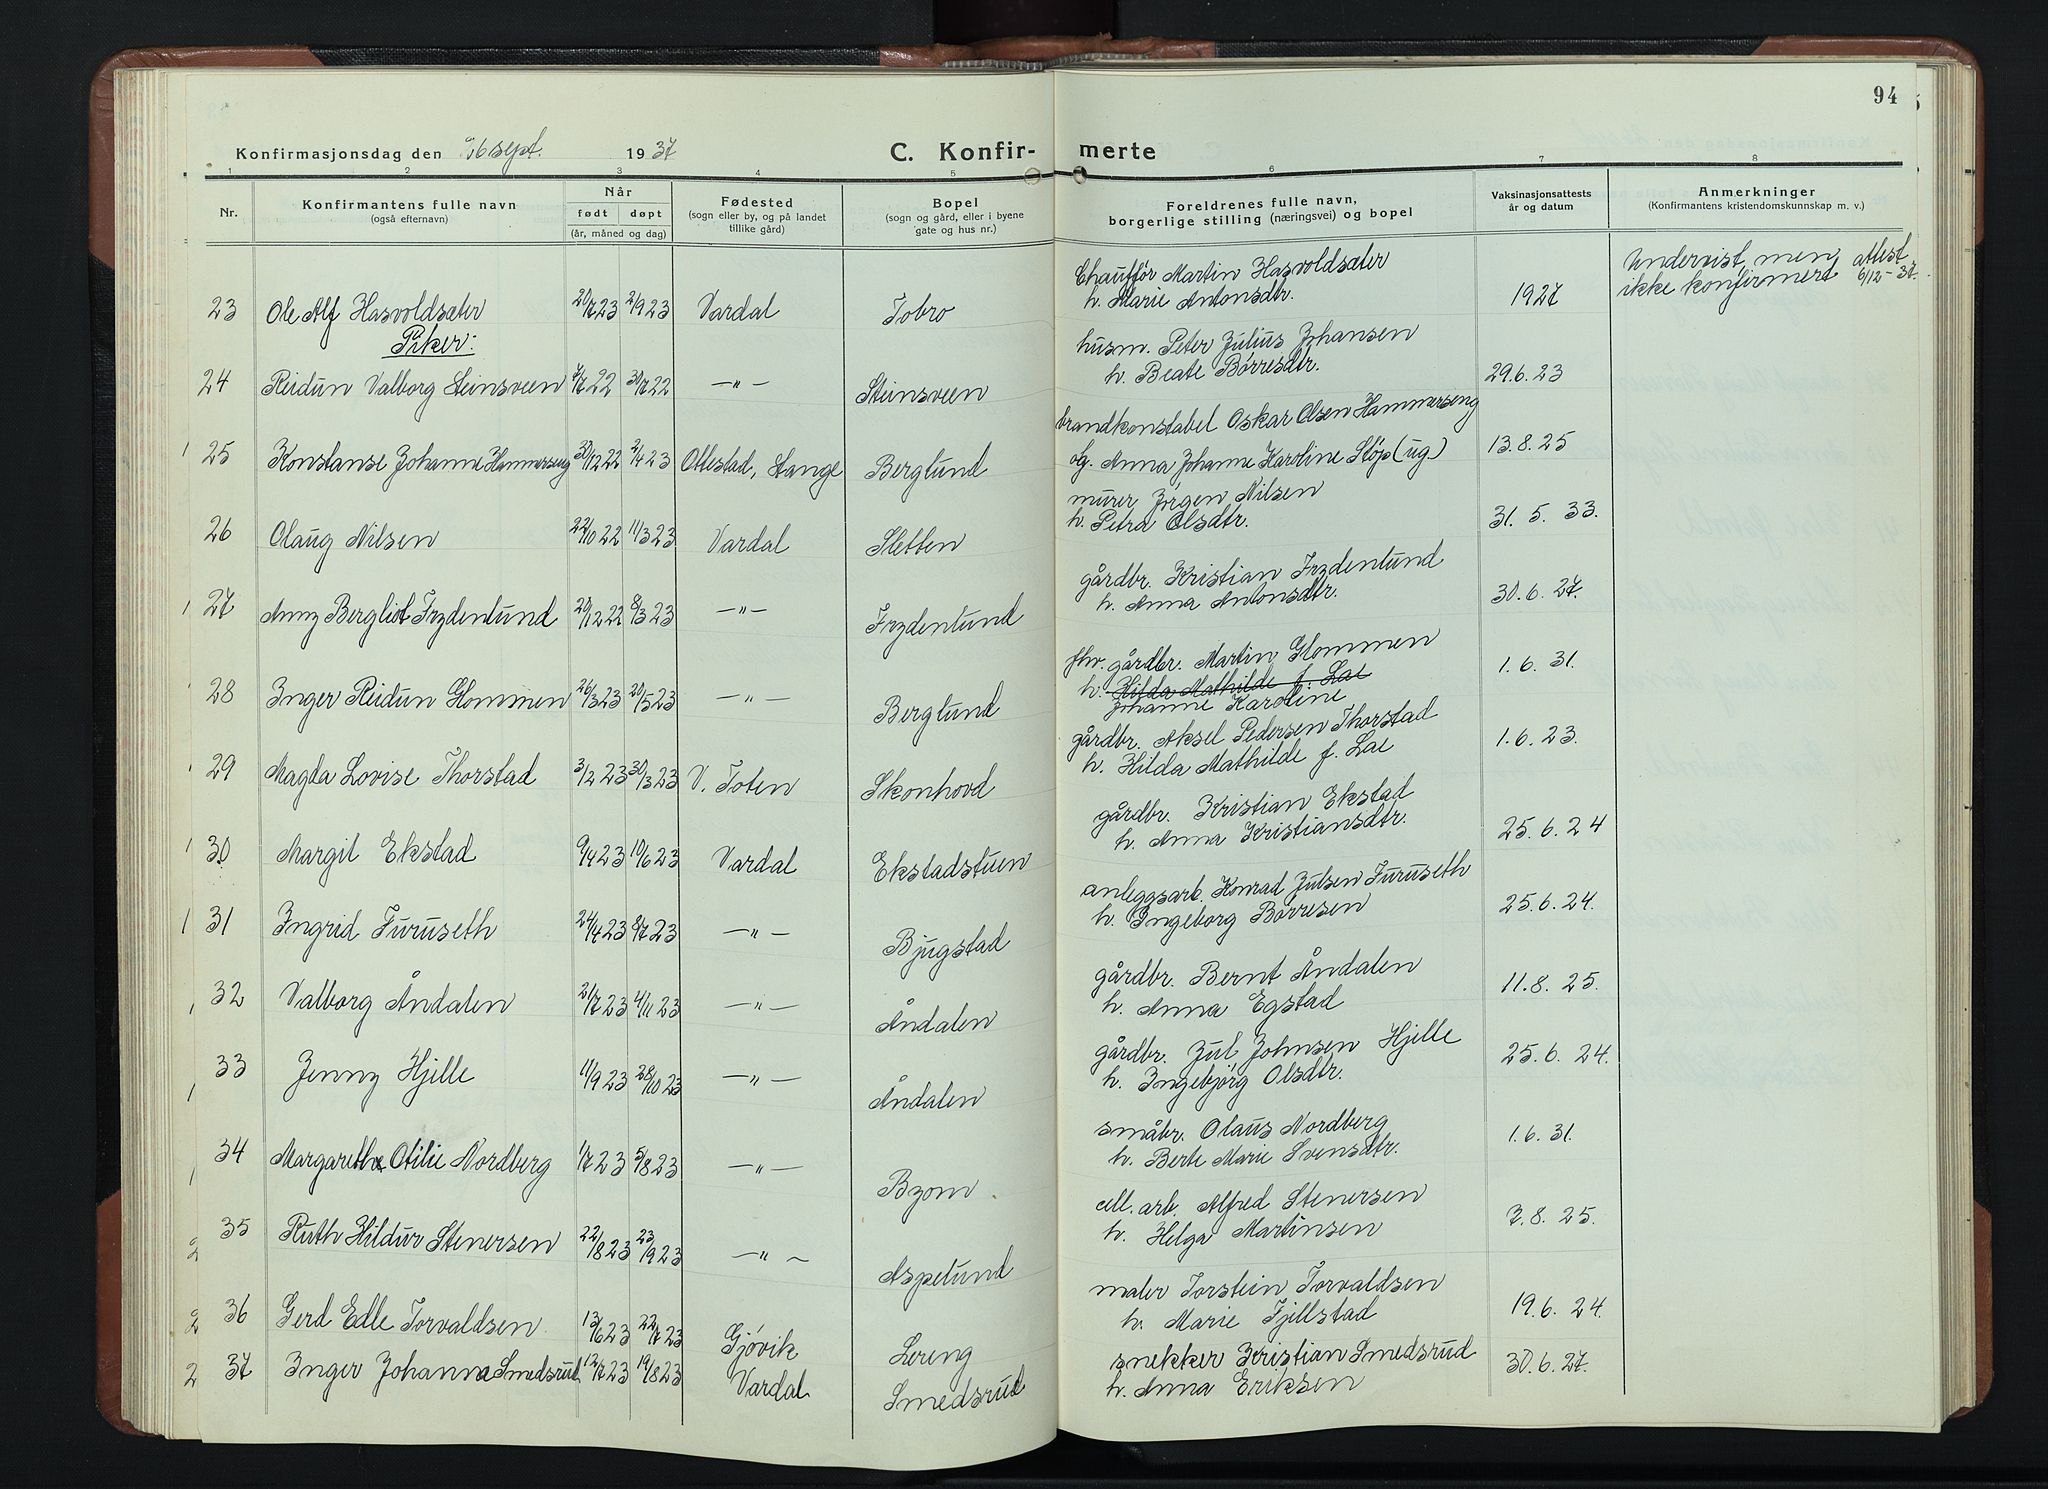 94
Konfirmasjonsdag den 26 sept. 1937 C. Konfir- merte
1 2 3 4 5 6 7 8
Nr. Konfirmantens fulle navn (også efternavn) Når født døpt (år, måned og dag) Fødested (sogn eller by, og på landet tillike gård) Bopel (sogn og gård, eller i byene gate og hus nr.) Foreldrenes fulle navn, borgerlige stilling (næringsvei) og bopel Vaksinasjonsattests år og datum Anmerkninger (Konfirmantens kristendomskunnskap m. v.)
23 Ole Alf Hasvoldsæter 20/7 23 2/9 23 Vardal Tobro Chauffør Martin Hasvoldsæter h. Marie Antonsdtr. 1927 Undervist, men ikke konfirmert attest 6/12-37.
Piker:
24 Reidun Valborg Steinsveen 7/7 22 30/7 22 -"- Steinsveen husm. Peter Julius Johansen h. Beate Børresdtr. 29.6.23
1 25 Konstanse Johanne Hammerseng 30/12 22 2/4 23 Ottestad, Stange Berglund brandkonstabel Oskar Olsen Hammerseng og Anna Johanne Karoline Sløp (ug) 13.8.25
26 Olaug Nilsen 22/10 22 11/3 23 Vardal Sletten murer Jørgen Nilsen h. Petra Olsdtr. 31.5.33.
1 27 Anny Bergliot Frydenlund 20/12 22 8/3 23 -"- Frydenlund gårdbr. Kristian Frydenlund h. Anna Antonsdtr. 30.6.27.
28 Inger Reidun Glommen 26/3 23 20/5 23 -"- Berglund fhv. gårdbr. Martin Glommen h. Hilda Mathilde f. Lae Johanne Karoline 1.6.31.
29 Magda Lovise Thorstad 3/2 23 30/3 23 V. Toten Skonhovd gårdbr. Aksel Pedersen Thorstad h. Hilda Mathilde f. Lae 1.6.23.
1 30 Margit Ekstad 9/4 23 10/6 23 Vardal Ekstadstuen gårdbr. Kristian Ekstad h. Anna Kristiansdtr. 25.6.24
1 31 Ingrid Furuseth 24/4 23 8/7 23 -"- Bjugstad anleggsarb. Konrad Julsen Furuseth h. Ingeborg Børresen 25.6.24.
1 32 Valborg Åndalen 21/7 23 4/11 23 -"- Åndalen gårdbr. Bernt Åndalen h. Anna Egstad 11.8.25.
1 33 Jenny Hjelle 11/9 23 28/10 23 -"- Åndalen gårdbr. Jul Johnsen Hjelle h. Ingebjørg Olsdtr. 25.6.24.
1 34 Margarethe Otilie Nordberg 1/7 23 5/8 23 -"- Byom småbr. Olaus Nordberg h. Berte Marie Svensdtr. 1.6.31.
2 35 Ruth Hildur Stenersen 22/8 23 23/9 23 -"- Aspelund cell.arb. Alfred Stenersen h. Helga Martinsen 7.8.25.
2 36 Gerd Edle Torvaldsen 13/6 23 22/7 23 Gjøvik Lereng maler Torstein Torvaldsen h. Marie Fjellstad 19.6.24.
2 37 Inger Johanna Smedsrud 12/7 23 19/8 23 Vardal Smedsrud snekker Kristian Smedsrud h. Anna Eriksen 30.6.27.